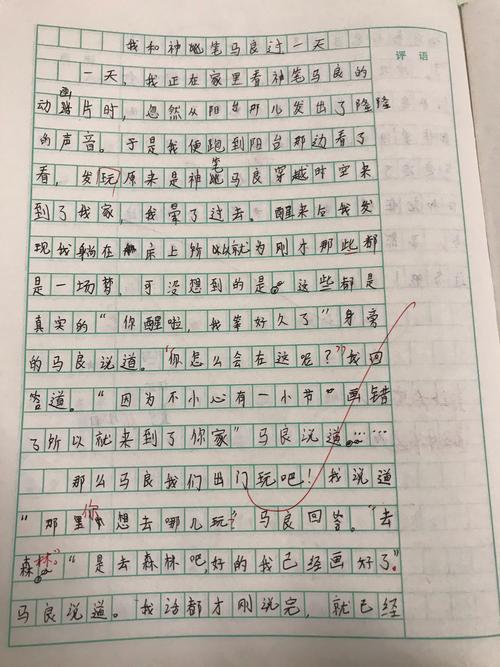 我和神笔马良过一天
评语
一天，我正在家里看神笔马良的
动画片时，忽然从阳台那儿发出了隆隆
的声音。于是我便跑到阳台那边看了
看，发玩原来是神笔马良穿越时空来
到了我家，我晕了过去。醒来后我发
现我躺在床上所以就为刚才那些都
是一场梦，可没想到的是。这些都是
真实的“你醒啦，我等好久了”身旁
的马良说道。“你怎么会在这呢？”我回
答道。“因为不小心有一小节”画错
了所以就来到了你家”马良说道……
那么马良我们出门玩吧！我说道
“那里你想去哪儿玩？马良回答。“去
森林。”“是去森林吧好的我已经画好了”
马良说道。我话都才刚说完，就已经